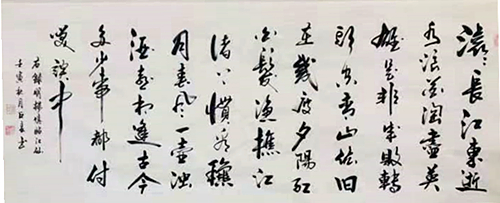 滚〻長江東逝
水浪花淘盡英
雄是非成敗轉
頭空青山依旧
在幾度夕陽紅
白髮漁樵江
渚上慣看穐
月春風一壺濁
酒喜相逢古今
多少事都付
笑談中
右録明楊慎臨江仙
壬寅秋月